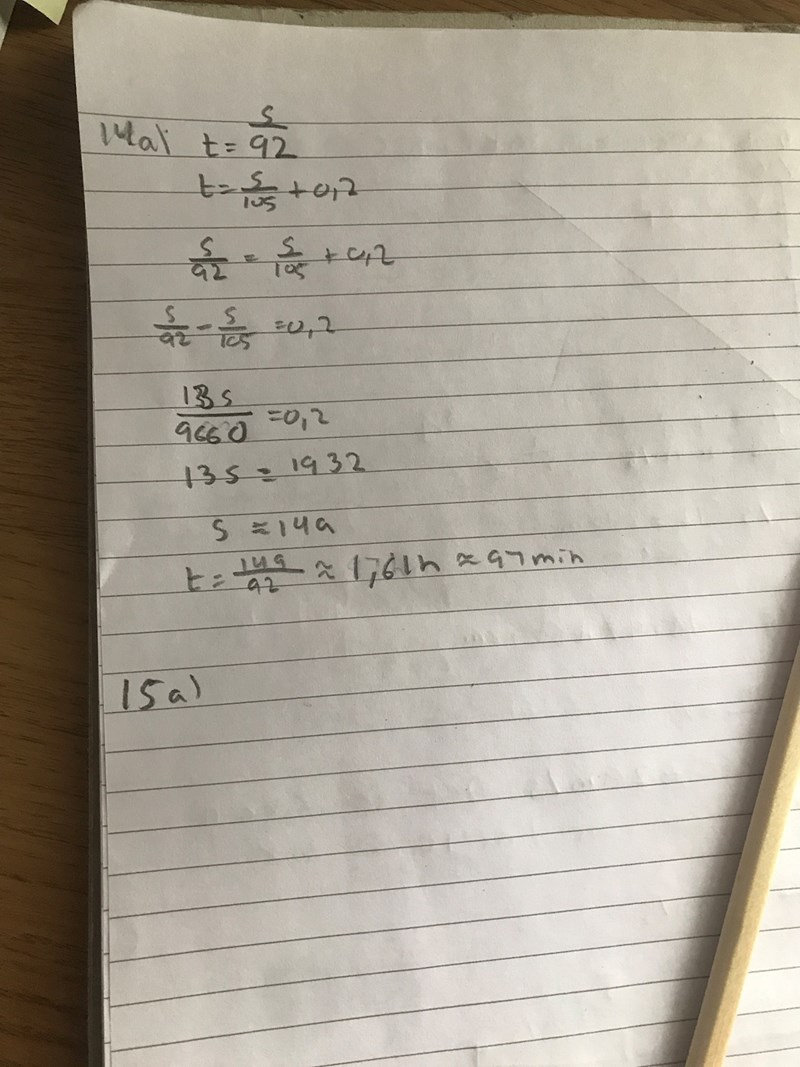 14a) t = s/92
t = s/105 + 0,2
s/92 = s/105 + 0,2
s/92 - s/105 = 0,2
13s/9660 = 0,2
13s = 1932
s ≈ 149
t = 149/92 ≈ 1,61h ≈ 97min
15a)